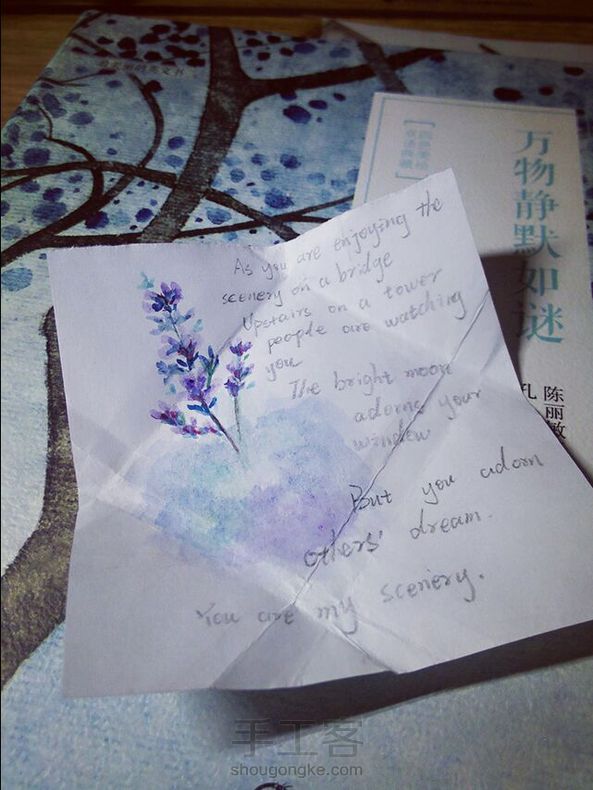 As you are enjoying the
scenery on a bridge
Upstairs on a tower
people are watching
you
The bright moon
adorns your
window
But you adorn
others' dream.
You are my scenery.
万物静默如谜
陈丽敏
孔
手工客
shougongke.com